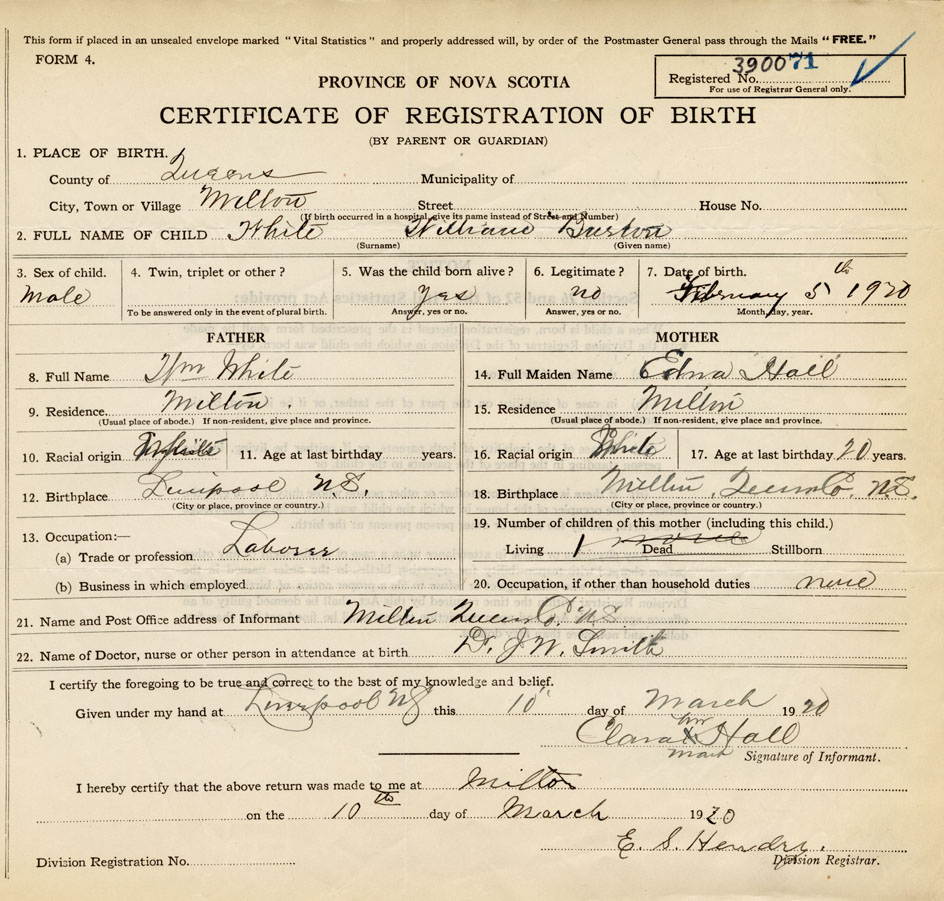 This form if placed in an unsealed envelope marked "Vital Statistics" and properly addressed will, by order of the Postmaster General pass through the Mails "FREE."
FORM 4.
Registered No. 390071
For use of Registrar General only.
PROVINCE OF NOVA SCOTIA
CERTIFICATE OF REGISTRATION OF BIRTH
(BY PARENT OR GUARDIAN)
1. PLACE OF BIRTH.
County of Queens Municipality of
City, Town or Village Milton Street House No.
(If birth occurred in a hospital, give its name instead of Street and Number)
2. FULL NAME OF CHILD White William Burton
(Surname) (Given name)
3. Sex of child. 4. Twin, triplet or other? 5. Was the child born alive? 6. Legitimate? 7. Date of birth.
Male Yes no February 5th 1920
To be answered only in the event of plural birth. Answer, yes or no. Answer, yes or no. Month, day, year.
FATHER MOTHER
8. Full Name Wm White 14. Full Maiden Name Edna Hall
9. Residence. Milton. 15. Residence Milton
(Usual place of abode.) If non-resident, give place and province. (Usual place of abode.) If non-resident, give place and province.
10. Racial origin White 11. Age at last birthday years. 16. Racial origin White 17. Age at last birthday 20 years.
12. Birthplace Liverpool N.S. 18. Birthplace Milton, Queens Co. N.S.
(City or place, province or country.) (City or place, province or country.)
13. Occupation:— 19. Number of children of this mother (including this child.)
(a) Trade or profession Laborer Living 1 Dead Stillborn
(b) Business in which employed 20. Occupation, if other than household duties none
21. Name and Post Office address of Informant Milton Queens Co. N.S
22. Name of Doctor, nurse or other person in attendance at birth Dr. J. W. Smith
I certify the foregoing to be true and correct to the best of my knowledge and belief.
Given under my hand at Liverpool NS this 10" day of March 1920
Clara her X Hall
mark Signature of Informant.
I hereby certify that the above return was made to me at Milton
on the 10th day of March 1920
E. S. Hendry.
Division Registration No. Division Registrar.